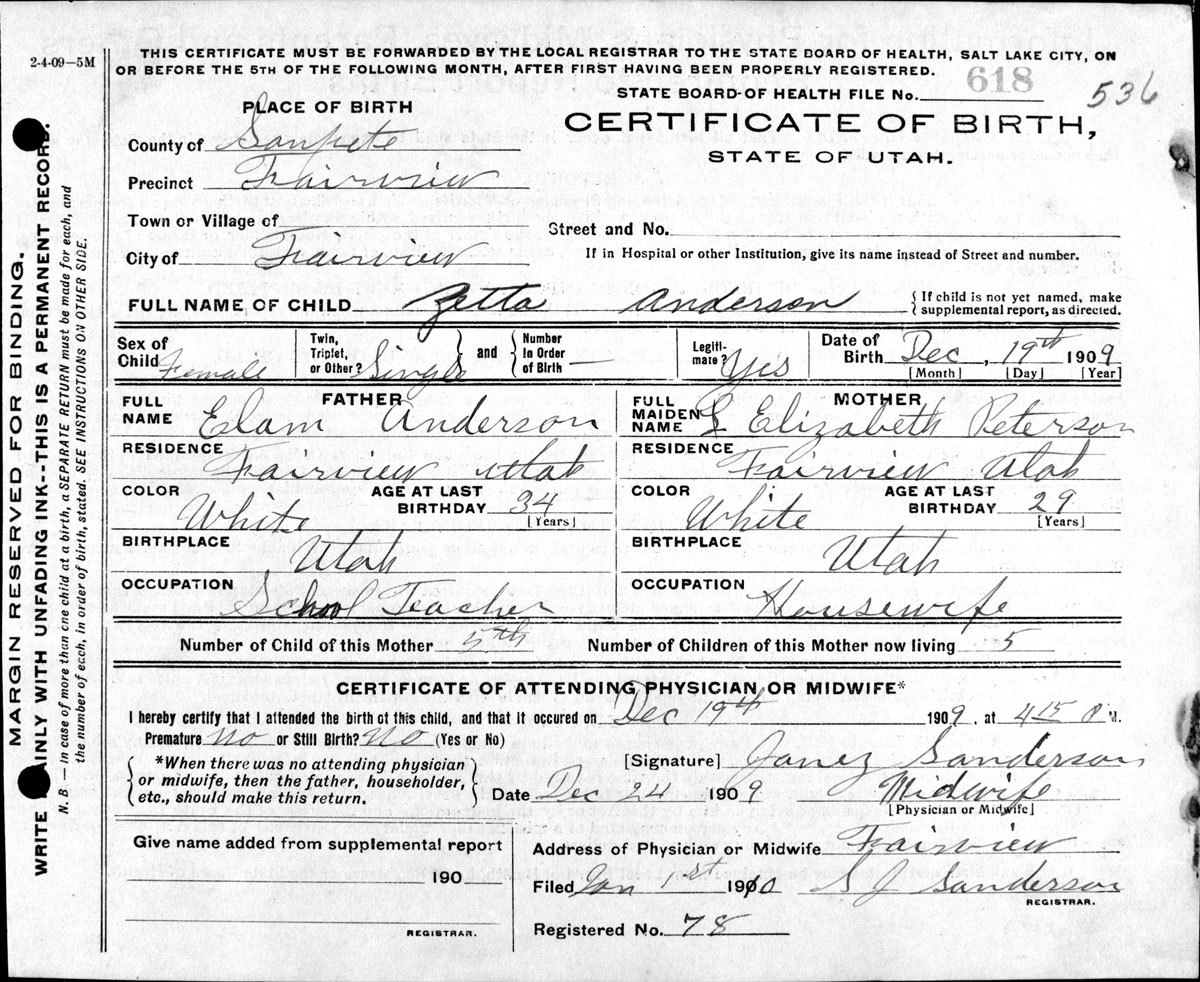 2-4-09—5M
THIS CERTIFICATE MUST BE FORWARDED BY THE LOCAL REGISTRAR TO THE STATE BOARD OF HEALTH, SALT LAKE CITY, ON
OR BEFORE THE 5TH OF THE FOLLOWING MONTH, AFTER FIRST HAVING BEEN PROPERLY REGISTERED.
STATE BOARD OF HEALTH FILE No. 618
536
PLACE OF BIRTH
CERTIFICATE OF BIRTH,
STATE OF UTAH.
County of Sanpete
Precinct Fairview
Town or Village of
Street and No.
City of Fairview
If in Hospital or other Institution, give its name instead of Street and number.
FULL NAME OF CHILD Zetta Anderson
{If child is not yet named, make
supplemental report, as directed.
Sex of Child Female
Twin, Triplet, or Other? Single
and
Number In Order of Birth —
Legitimate? Yes
Date of Birth Dec, 19th 1909
[Month] [Day] [Year]
FATHER
FULL NAME Elam Anderson
MOTHER
FULL MAIDEN NAME L Elizabeth Peterson
RESIDENCE Fairview Utah
RESIDENCE Fairview Utah
COLOR White
AGE AT LAST BIRTHDAY 34
[Years]
COLOR White
AGE AT LAST BIRTHDAY 29
[Years]
BIRTHPLACE Utah
BIRTHPLACE Utah
OCCUPATION School Teacher
OCCUPATION Housewife
Number of Child of this Mother 5th
Number of Children of this Mother now living 5
CERTIFICATE OF ATTENDING PHYSICIAN OR MIDWIFE*
I hereby certify that I attended the birth of this child, and that it occured on Dec 19th 1909, at 415 M.
Premature No or Still Birth? No (Yes or No)
*When there was no attending physician
or midwife, then the father, householder,
etc., should make this return.
[Signature] Sanderson
Date Dec 24 1909 Midwife
[Physician or Midwife]
Give name added from supplemental report
190
REGISTRAR.
Address of Physician or Midwife Fairview
Filed Jan 1st 1910 S J Sanderson
REGISTRAR.
Registered No. 78
MARGIN RESERVED FOR BINDING.
WRITE AINLY WITH UNFADING INK--THIS IS A PERMANENT RECORD.
N. B. — In case of more than one child at a birth, a SEPARATE RETURN must be made for each, and
the number of each, in order of birth, stated. SEE INSTRUCTIONS ON OTHER SIDE.